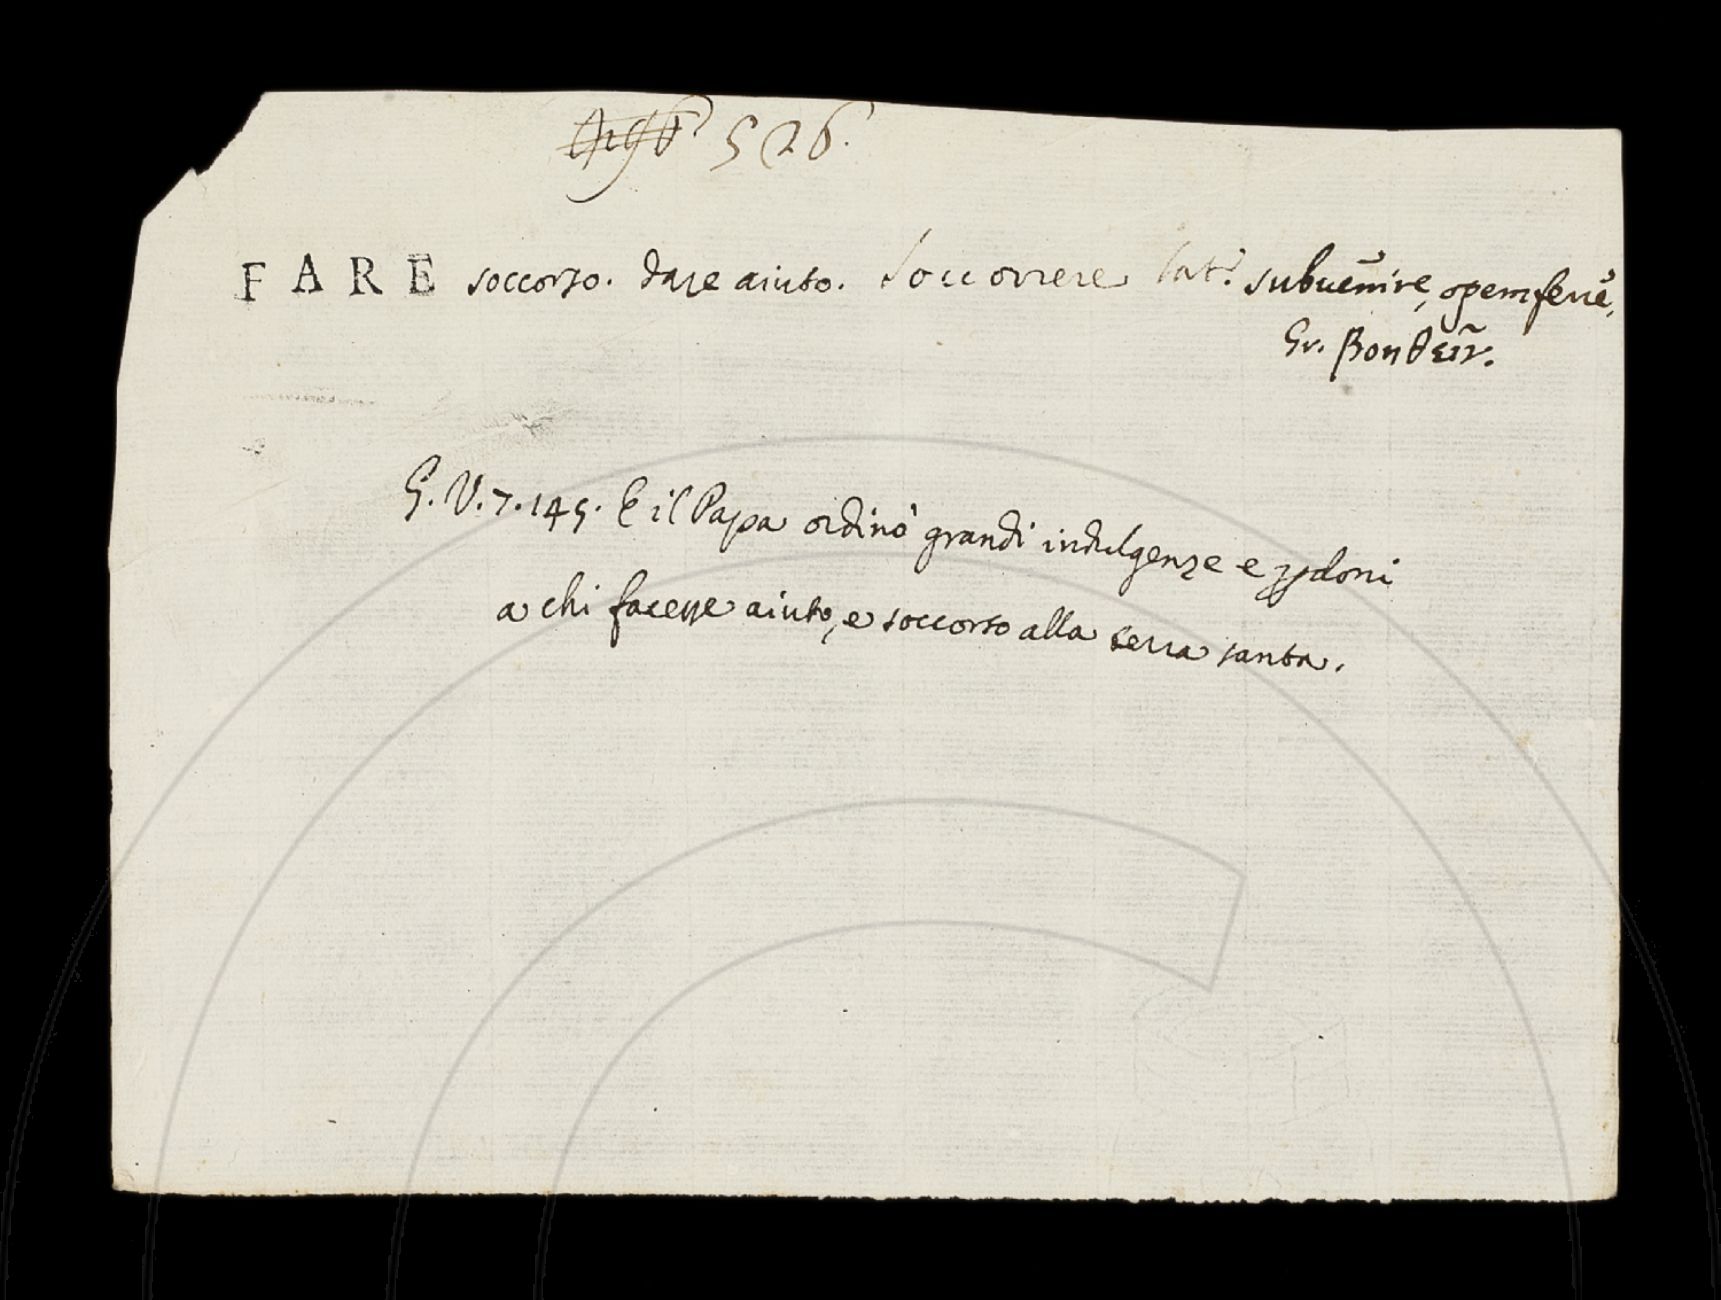 526.
FARE soccorso. dare aiuto. Soccorrere Lat. subuenire, opem ferre,
Gr. βοηθεῖν.
G. V. 7. 145. E il Papa ordinò grandi indulgenze e pdoni
a chi facesse aiuto, e soccorso alla terra santa.